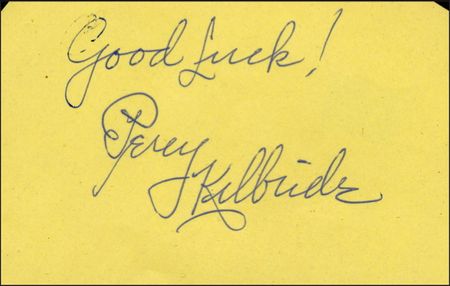 Good Luck!
Percy
Kilbride